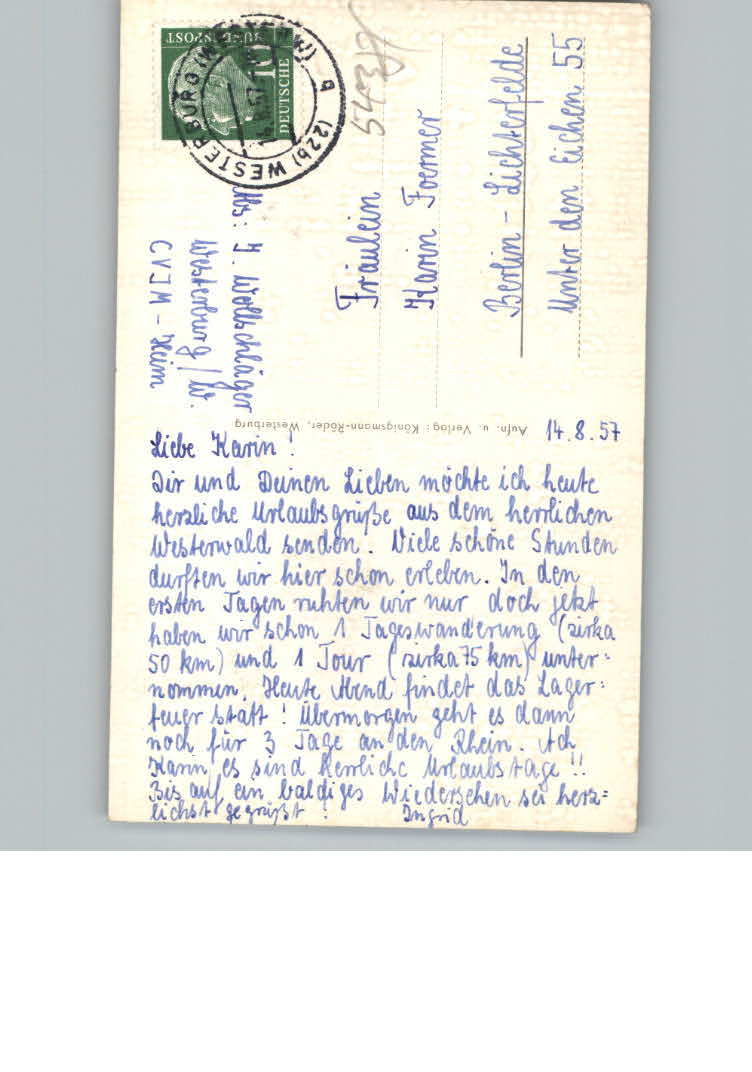 14.8.57
Liebe Karin!
Dir und Deinen Lieben möchte ich heute
herzliche Urlaubsgrüße aus dem herrlichen
Westerwald senden. Viele schöne Stunden
durften wir hier schon erleben. In den
ersten Tagen ruhten wir nur doch jetzt
haben wir schon 1 Tageswanderung (zirka
50 km) und 1 Tour (zirka 75 km) unter=
nommen. Heute Abend findet das Lager=
feuer statt! Übermorgen geht es dann
noch für 3 Tage an den Rhein. Ach
Karin, es sind herrliche Urlaubstage!!
Bis auf ein baldiges Wiedersehen sei herz=
lichst gegrüßt! Ingrid
Aufn. u. Verlag: Königsmann-Röder, Westerburg
Abs: I. Wollschläger
Westerburg/W.
CVJM-Heim
DEUTSCHE
BUNDESPOST
10
(22b) WESTERBURG (WESTERW)
Fräulein
Karin Foermer
Berlin-Lichterfelde
Unter den Eichen 55